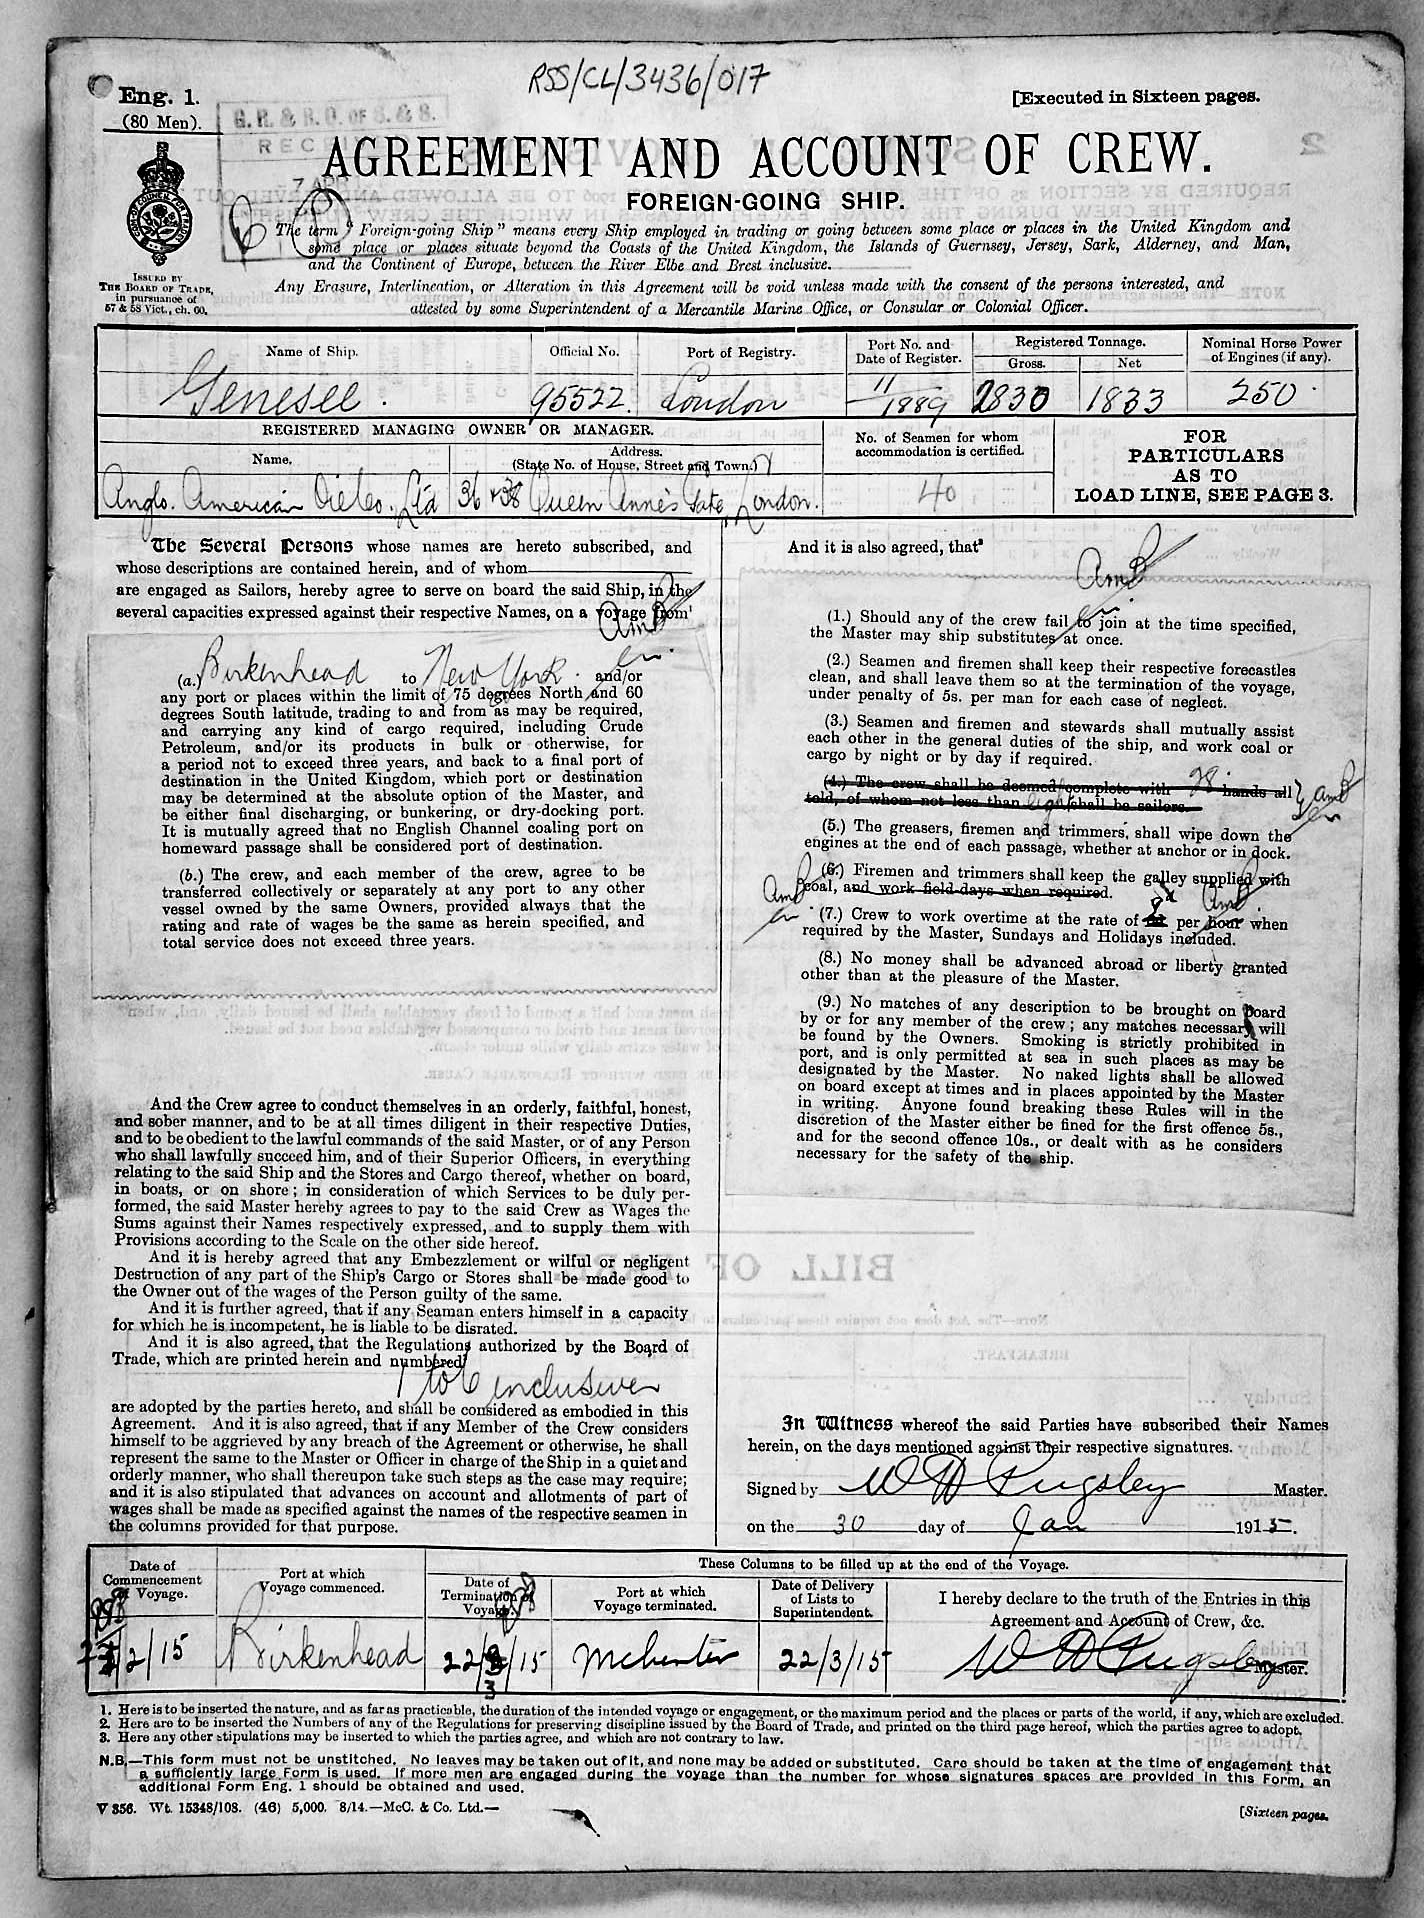 RSS/CL/3436/017
Eng. 1.
(80 Men).
[Executed in Sixteen pages.
G. R. & R. O. OF S. & S.
7 APR
AGREEMENT AND ACCOUNT OF CREW.
FOREIGN-GOING SHIP.
ISSUED BY
THE BOARD OF TRADE,
in pursuance of
57 & 58 Vict., ch. 60.
The term "Foreign-going Ship" means every Ship employed in trading or going between some place or places in the United Kingdom and
some place or places situate beyond the Coasts of the United Kingdom, the Islands of Guernsey, Jersey, Sark, Alderney, and Man,
and the Continent of Europe, between the River Elbe and Brest inclusive.
Any Erasure, Interlineation, or Alteration in this Agreement will be void unless made with the consent of the persons interested, and
attested by some Superintendent of a Mercantile Marine Office, or Consular or Colonial Officer.
Name of Ship. Official No. Port of Registry. Port No. and Date of Register. Registered Tonnage. Gross. Net Nominal Horse Power of Engines (if any).
Genesee. 95522. London 11/1889 2830 1833 250.
REGISTERED MANAGING OWNER OR MANAGER.
Name. Address. (State No. of House, Street and Town.)
No. of Seamen for whom accommodation is certified.
Anglo. American Oil Co. Ltd 36 & 38 Queen Anne's Gate, London. 40
FOR
PARTICULARS
AS TO
LOAD LINE, SEE PAGE 3.
The Several Persons whose names are hereto subscribed, and
whose descriptions are contained herein, and of whom
are engaged as Sailors, hereby agree to serve on board the said Ship, in the
several capacities expressed against their respective Names, on a voyage from¹
AmB
(a.) Birkenhead to New York. and/or
any port or places within the limit of 75 degrees North and 60
degrees South latitude, trading to and from as may be required,
and carrying any kind of cargo required, including Crude
Petroleum, and/or its products in bulk or otherwise, for
a period not to exceed three years, and back to a final port of
destination in the United Kingdom, which port or destination
may be determined at the absolute option of the Master, and
be either final discharging, or bunkering, or dry-docking port.
It is mutually agreed that no English Channel coaling port on
homeward passage shall be considered port of destination.
(b.) The crew, and each member of the crew, agree to be
transferred collectively or separately at any port to any other
vessel owned by the same Owners, provided always that the
rating and rate of wages be the same as herein specified, and
total service does not exceed three years.
And the Crew agree to conduct themselves in an orderly, faithful, honest,
and sober manner, and to be at all times diligent in their respective Duties,
and to be obedient to the lawful commands of the said Master, or of any Person
who shall lawfully succeed him, and of their Superior Officers, in everything
relating to the said Ship and the Stores and Cargo thereof, whether on board,
in boats, or on shore; in consideration of which Services to be duly per-
formed, the said Master hereby agrees to pay to the said Crew as Wages the
Sums against their Names respectively expressed, and to supply them with
Provisions according to the Scale on the other side hereof.
And it is hereby agreed that any Embezzlement or wilful or negligent
Destruction of any part of the Ship's Cargo or Stores shall be made good to
the Owner out of the wages of the Person guilty of the same.
And it is further agreed, that if any Seaman enters himself in a capacity
for which he is incompetent, he is liable to be disrated.
And it is also agreed, that the Regulations authorized by the Board of
Trade, which are printed herein and numbered²
1 to 6 inclusive
are adopted by the parties hereto, and shall be considered as embodied in this
Agreement. And it is also agreed, that if any Member of the Crew considers
himself to be aggrieved by any breach of the Agreement or otherwise, he shall
represent the same to the Master or Officer in charge of the Ship in a quiet and
orderly manner, who shall thereupon take such steps as the case may require;
and it is also stipulated that advances on account and allotments of part of
wages shall be made as specified against the names of the respective seamen in
the columns provided for that purpose.
And it is also agreed, that³
AmB
(1.) Should any of the crew fail to join at the time specified,
the Master may ship substitutes at once.
(2.) Seamen and firemen shall keep their respective forecastles
clean, and shall leave them so at the termination of the voyage,
under penalty of 5s. per man for each case of neglect.
(3.) Seamen and firemen and stewards shall mutually assist
each other in the general duties of the ship, and work coal or
cargo by night or by day if required.
(4.) The crew shall be deemed complete with 28 hands all
told, of whom not less than eight shall be sailors.
AmB
(5.) The greasers, firemen and trimmers, shall wipe down the
engines at the end of each passage, whether at anchor or in dock.
(6.) Firemen and trimmers shall keep the galley supplied with
coal, and work field-days when required.
AmB
(7.) Crew to work overtime at the rate of per hour when
required by the Master, Sundays and Holidays included.
AmB
(8.) No money shall be advanced abroad or liberty granted
other than at the pleasure of the Master.
(9.) No matches of any description to be brought on board
by or for any member of the crew; any matches necessary will
be found by the Owners. Smoking is strictly prohibited in
port, and is only permitted at sea in such places as may be
designated by the Master. No naked lights shall be allowed
on board except at times and in places appointed by the Master
in writing. Anyone found breaking these Rules will in the
discretion of the Master either be fined for the first offence 5s.,
and for the second offence 10s., or dealt with as he considers
necessary for the safety of the ship.
In Witness whereof the said Parties have subscribed their Names
herein, on the days mentioned against their respective signatures.
Signed by W H Pugsley Master.
on the 30 day of Jan 1915.
Date of Commencement of Voyage. Port at which Voyage commenced.
These Columns to be filled up at the end of the Voyage.
Date of Termination of Voyage. Port at which Voyage terminated. Date of Delivery of Lists to Superintendent.
I hereby declare to the truth of the Entries in this
Agreement and Account of Crew, &c.
2/15 Birkenhead 22/3/15 Mchester 22/3/15 W H Pugsley Master.
1. Here is to be inserted the nature, and as far as practicable, the duration of the intended voyage or engagement, or the maximum period and the places or parts of the world, if any, which are excluded.
2. Here are to be inserted the Numbers of any of the Regulations for preserving discipline issued by the Board of Trade, and printed on the third page hereof, which the parties agree to adopt.
3. Here any other stipulations may be inserted to which the parties agree, and which are not contrary to law.
N.B.—This form must not be unstitched. No leaves may be taken out of it, and none may be added or substituted. Care should be taken at the time of engagement that
a sufficiently large Form is used. If more men are engaged during the voyage than the number for whose signatures spaces are provided in this Form, an
additional Form Eng. 1 should be obtained and used.
V 356. Wt. 15348/108. (46) 5,000. 8/14.—McC. & Co. Ltd.—
[Sixteen pages.